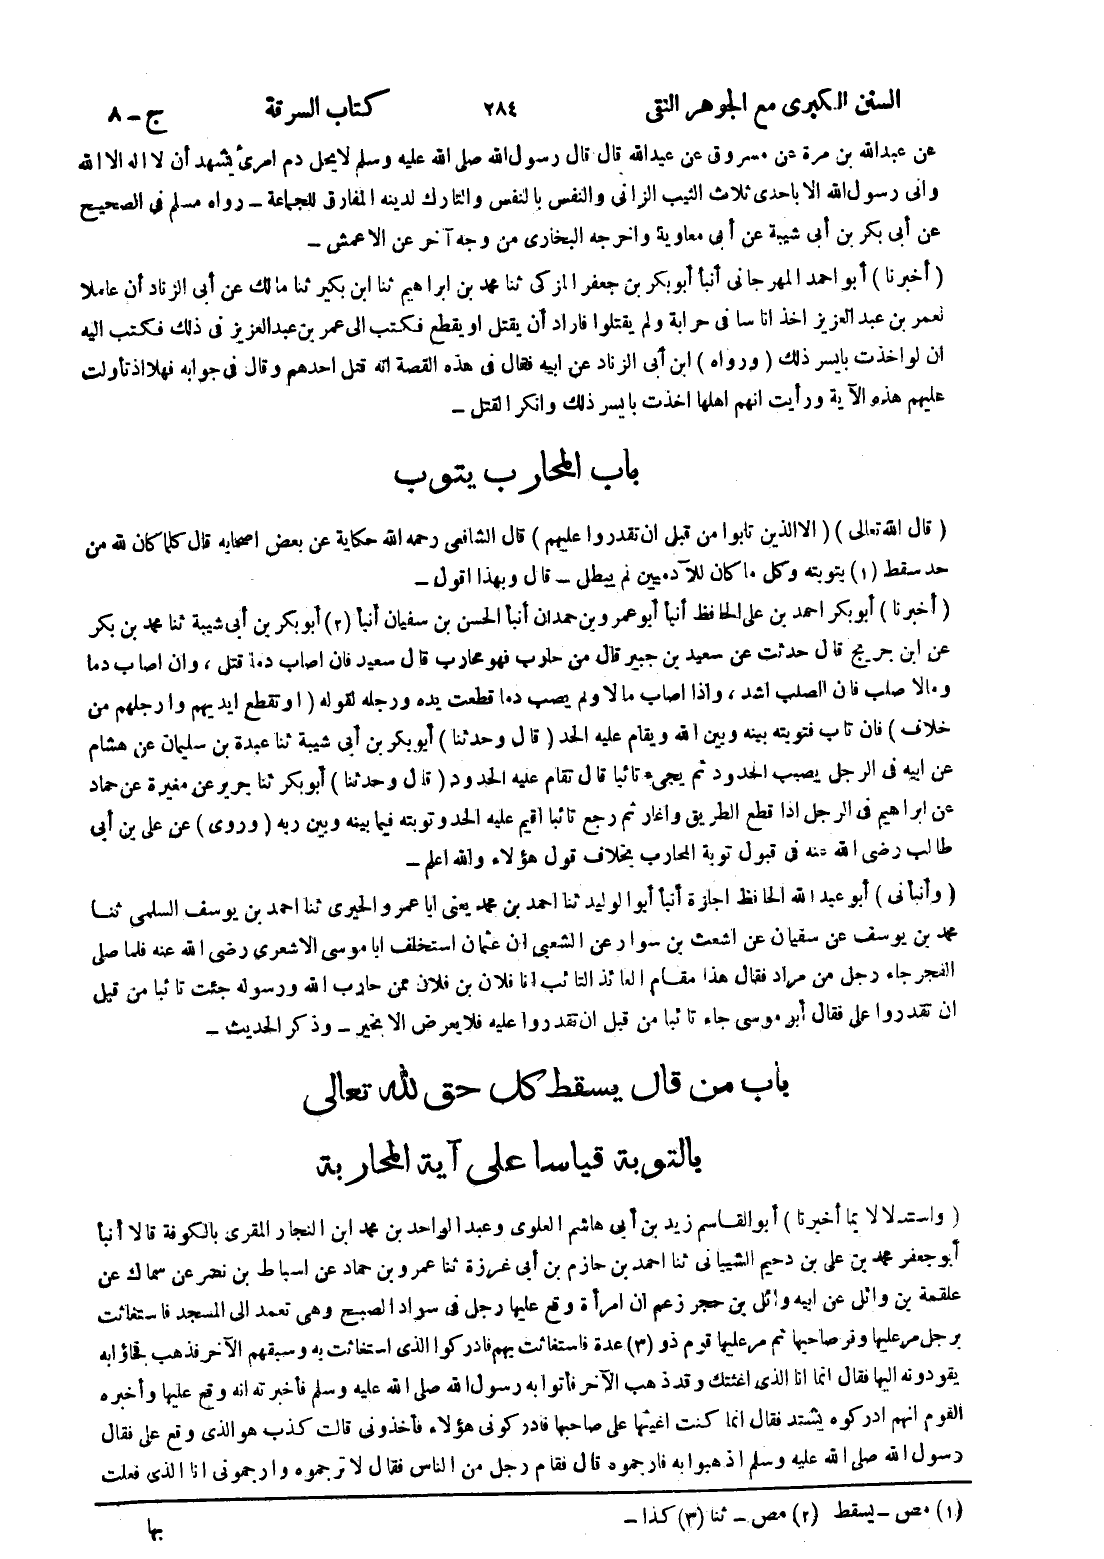 السنن الكبرى مع الجوهر النقى ٢٨٤ كتاب السرقة ج - ٨
عن عبدالله بن مرة عن مسروق عن عبدالله قال قال رسول الله صلى الله عليه وسلم لايحل دم امرئ يشهد أن لا اله الا الله
وانى رسول الله الا باحدى ثلاث الثيب الزانى والنفس بالنفس والتارك لدينه المفارق للجماعة - رواه مسلم فى الصحيح
عن أبى بكر بن أبى شيبة عن أبى معاوية واخرجه البخارى من وجه آخر عن الاعمش -
( أخبرنا ) أبو احمد المهرجانى أنبأ أبوبكر بن جعفر المزكى ثنا محمد بن ابراهيم ثنا ابن بكير ثنا مالك عن أبى الزناد أن عاملا
لعمر بن عبد العزيز اخذ اناسا فى حرابة ولم يقتلوا فاراد أن يقتل او يقطع فكتب الى عمر بن عبدالعزيز فى ذلك فكتب اليه
ان لو اخذت بايسر ذلك ( ورواه ) ابن أبى الزناد عن ابيه فقال فى هذه القصة انه قتل احدهم وقال فى جوابه فهلا اذ تأولت
عليهم هذه الآية ورأيت انهم اهلها اخذت بايسر ذلك وانكر القتل -
باب المحارب يتوب
( قال الله تعالى ) ( الا الذين تابوا من قبل ان تقدروا عليهم ) قال الشافعى رحمه الله حكاية عن بعض اصحابه قال كلما كان لله من
حد سقط (١) بتوبته وكل ما كان للآدميين لم يبطل - قال وبهذا اقول -
( أخبرنا ) أبوبكر احمد بن على الحافظ أنبأ أبو عمرو بن حمدان أنبأ الحسن بن سفيان أنبأ (٢) أبوبكر بن أبى شيبة ثنا محمد بن بكر
عن ابن جريج قال حدثت عن سعيد بن جبير قال من حارب فهو محارب قال سعيد فان اصاب دما قتل ، وان اصاب دما
ومالا صلب فان الصلب اشد ، واذا اصاب مالا ولم يصب دما قطعت يده ورجله لقوله ( او تقطع ايديهم وارجلهم من
خلاف ) فان تاب فتوبته بينه وبين الله ويقام عليه الحد ( قال وحدثنا ) أبوبكر بن أبى شيبة ثنا عبدة بن سليمان عن هشام
عن ابيه فى الرجل يصيب الحدود ثم يجىء تائبا قال تقام عليه الحدود ( قال وحدثنا ) أبوبكر ثنا جرير عن مغيرة عن حماد
عن ابراهيم فى الرجل اذا قطع الطريق واغار ثم رجع تائبا اقيم عليه الحد وتوبته فيما بينه وبين ربه ( وروى ) عن على بن أبى
طالب رضى الله عنه فى قبول توبة المحارب بخلاف قول هؤلاء والله اعلم -
( وأنبأنى ) أبو عبد الله الحافظ اجازة أنبأ أبو الوليد ثنا احمد بن محمد يعنى ابا عمرو الحيرى ثنا احمد بن يوسف السلمى ثنا
محمد بن يوسف عن سفيان عن اشعث بن سوار عن الشعبى ان عثمان استخلف ابا موسى الاشعرى رضى الله عنه فلما صلى
الفجر جاء رجل من مراد فقال هذا مقام العائذ التائب انا فلان بن فلان ممن حارب الله ورسوله جئت تائبا من قبل
ان تقدروا على فقال أبو موسى جاء تائبا من قبل ان تقدروا عليه فلا يعرض الا بخير - وذكر الحديث -
باب من قال يسقط كل حق لله تعالى
بالتوبة قياسا على آية المحاربة
( واستدلالا بما أخبرنا ) أبو القاسم زيد بن أبى هاشم العلوى وعبد الواحد بن محمد ابن النجار المقرى بالكوفة قالا أنبأ
أبو جعفر محمد بن على بن دحيم الشيبانى ثنا احمد بن حازم بن أبى غرزة ثنا عمرو بن حماد عن اسباط بن نصر عن سماك عن
علقمة بن وائل عن ابيه وائل بن حجر زعم ان امرأة وقع عليها رجل فى سواد الصبح وهى تعمد الى المسجد فاستغاثت
برجل مر عليها وفر صاحبها ثم مر عليها قوم ذو (٣) عدة فاستغاثت بهم فادركوا الذى استغاثت به وسبقهم الآخر فذهب فجاؤا به
يقودونه اليها فقال انما انا الذى اغثتك وقد ذهب الآخر فأتوا به رسول الله صلى الله عليه وسلم فأخبرته انه وقع عليها وأخبره
القوم انهم ادركوه يشتد فقال انما كنت اغيثها على صاحبها فادركونى هؤلاء فأخذونى قالت كذب هو الذى وقع على فقال
رسول الله صلى الله عليه وسلم اذهبوا به فارجموه قال فقام رجل من الناس فقال لا ترجموه وارجمونى انا الذى فعلت
(١) مص - يسقط (٢) مص - ثنا (٣) كذا -
بها